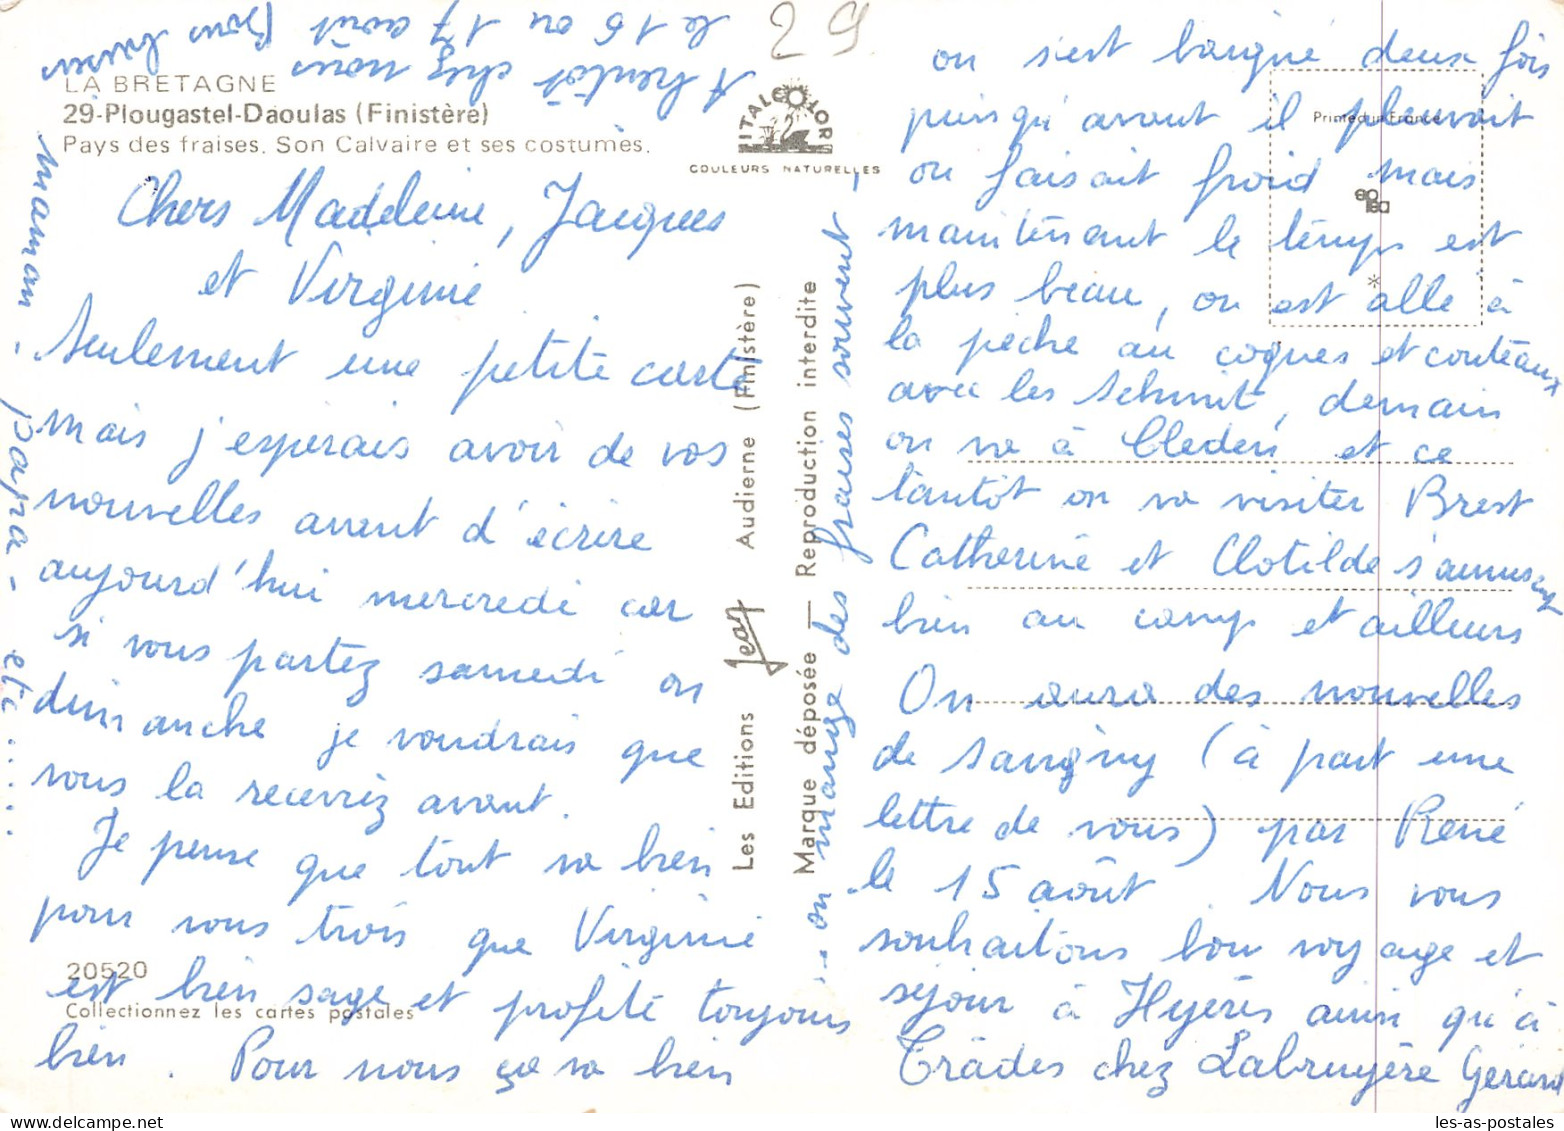 29
LA BRETAGNE
29-Plougastel-Daoulas (Finistère)
Pays des fraises. Son Calvaire et ses costumes.
ITALCOLOR
COULEURS NATURELLES
Printed in France
Chers Madeleine, Jacques
et Virginie
Seulement une petite carte
mais j'esperais avoir de vos
nouvelles avant d'écrire
aujourd'hui mercredi car
si vous partez samedi ou
dimanche je voudrais que
vous la receviez avant.
Je pense que tout va bien
pour vous trois que Virginie
est bien sage et profite toujours
bien. Pour nous ça va bien
on s'est baigné deux fois
puisqu'avant il pleuvait
ou faisait froid mais
maintenant le temps est
plus beau, on est allé à
la pêche au coques et couteaux
avec les Schmit, demain
on va à Cleder et ce
tantôt on va visiter Brest
Catherine et Clotilde s'amusent
bien au camp et ailleurs
On aura des nouvelles
de Savigny (à part une
lettre de vous) par René
le 15 août. Nous vous
souhaitons bon voyage et
séjour à Hyères ainsi qu'à
Trâdes chez Labruyère Gérard
on mange des fraises souvent
A bientôt chez nous
le 16 ou 17 août Bons baisers
maman - papa - etc .....
Les Editions Jean Audierne (Finistère)
Marque déposée — Reproduction interdite
20520
Collectionnez les cartes postales
les-as-postales